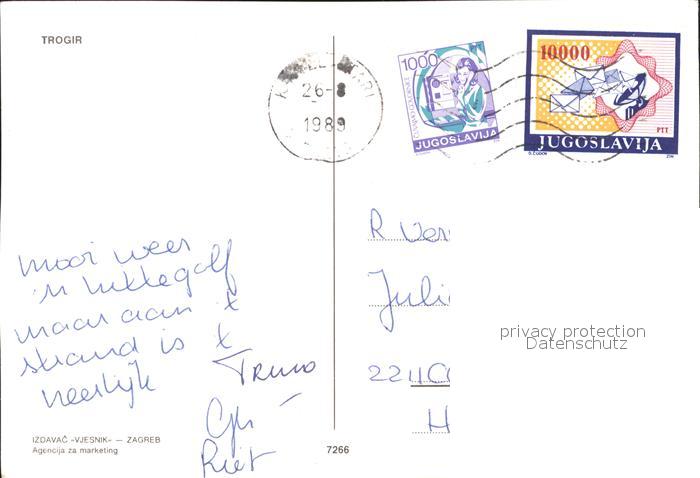 TROGIR
26-8
1989
1000
JUGOSLAVIJA
10000
PTT
JUGOSLAVIJA
mooi weer
'n hittegolf
maar aan 't
strand is 't
heerlijk
Riet
R Ver
Juli
2211
H
privacy protection
Datenschutz
IZDAVAČ »VJESNIK« — ZAGREB
Agencija za marketing
7266